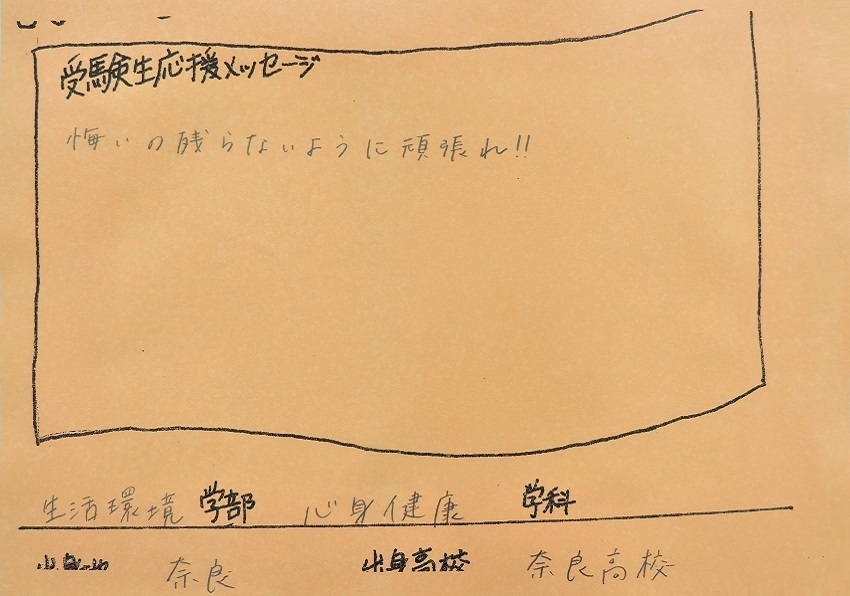 受験生応援メッセージ
悔いの残らないように頑張れ!!
生活環境学部 心身健康 学科
奈良 出身高校 奈良高校